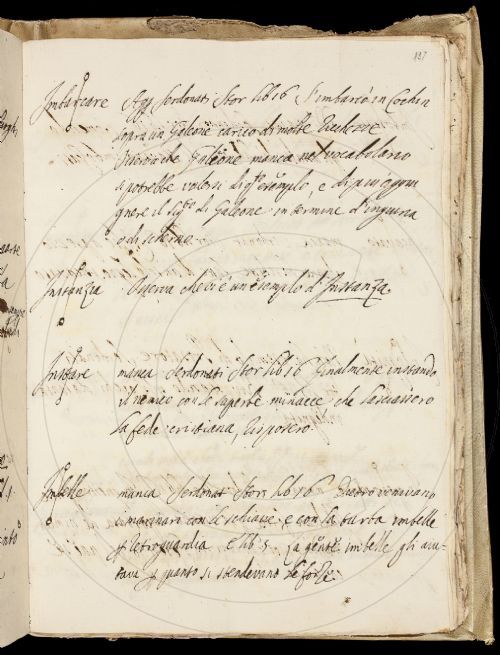 137
Imbarcare Agg. Serdonati Stor lib 16 S'imbarcò in Cochin
sopra un Galeone carico di molte
che Galeone manca nel vocabolario
e potrebbe valersi di q.to esempio, e di più aggiu
gnere il sig.to di Galeone in termine d'ingiuria
o di scherno
Instanzia Osserva che vi è un esempio d'Instanza.
Instare manca Serdonati Stor lib 16 finalmente instando
il nemico con le superbe minacce che lasciassero
la fede cristiana, risposero
Imbelle manca Serdonati Stor lib 16 Dietro venivano
i marinari con le schiave e con la turba imbelle
p retroguardia e lib 5 La gente imbelle gli aiu-
tava p quanto si stendevano le forze